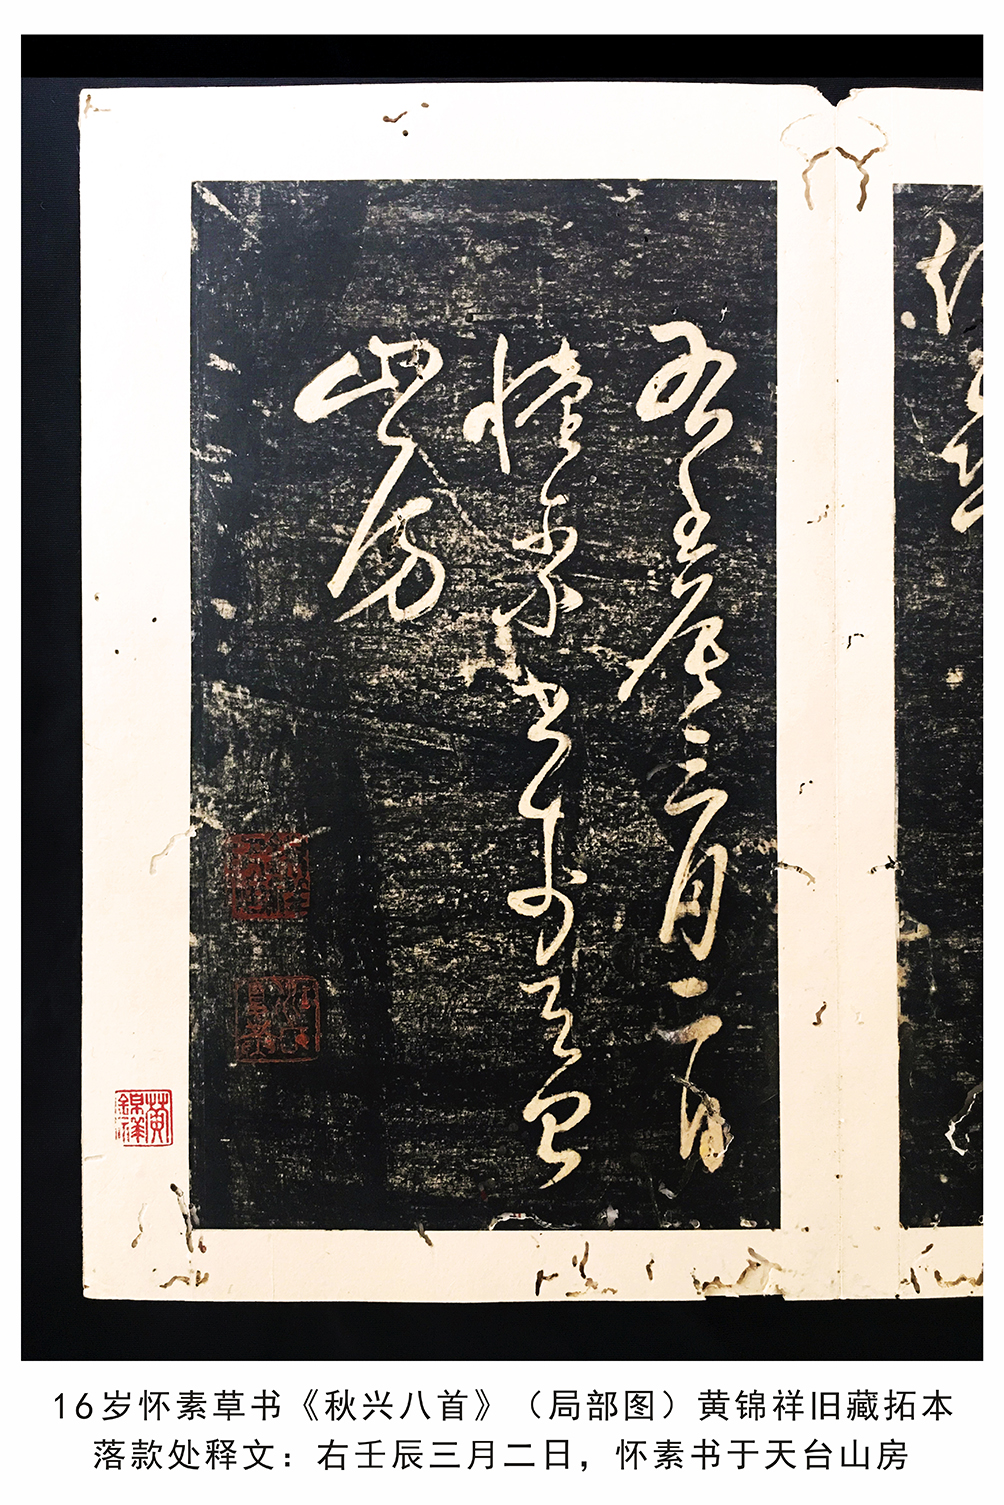 右壬辰三月二日
懷素書於天台
山房
黄錦祥
16岁怀素草书《秋兴八首》（局部图）黄锦祥旧藏拓本
落款处释文：右壬辰三月二日，怀素书于天台山房